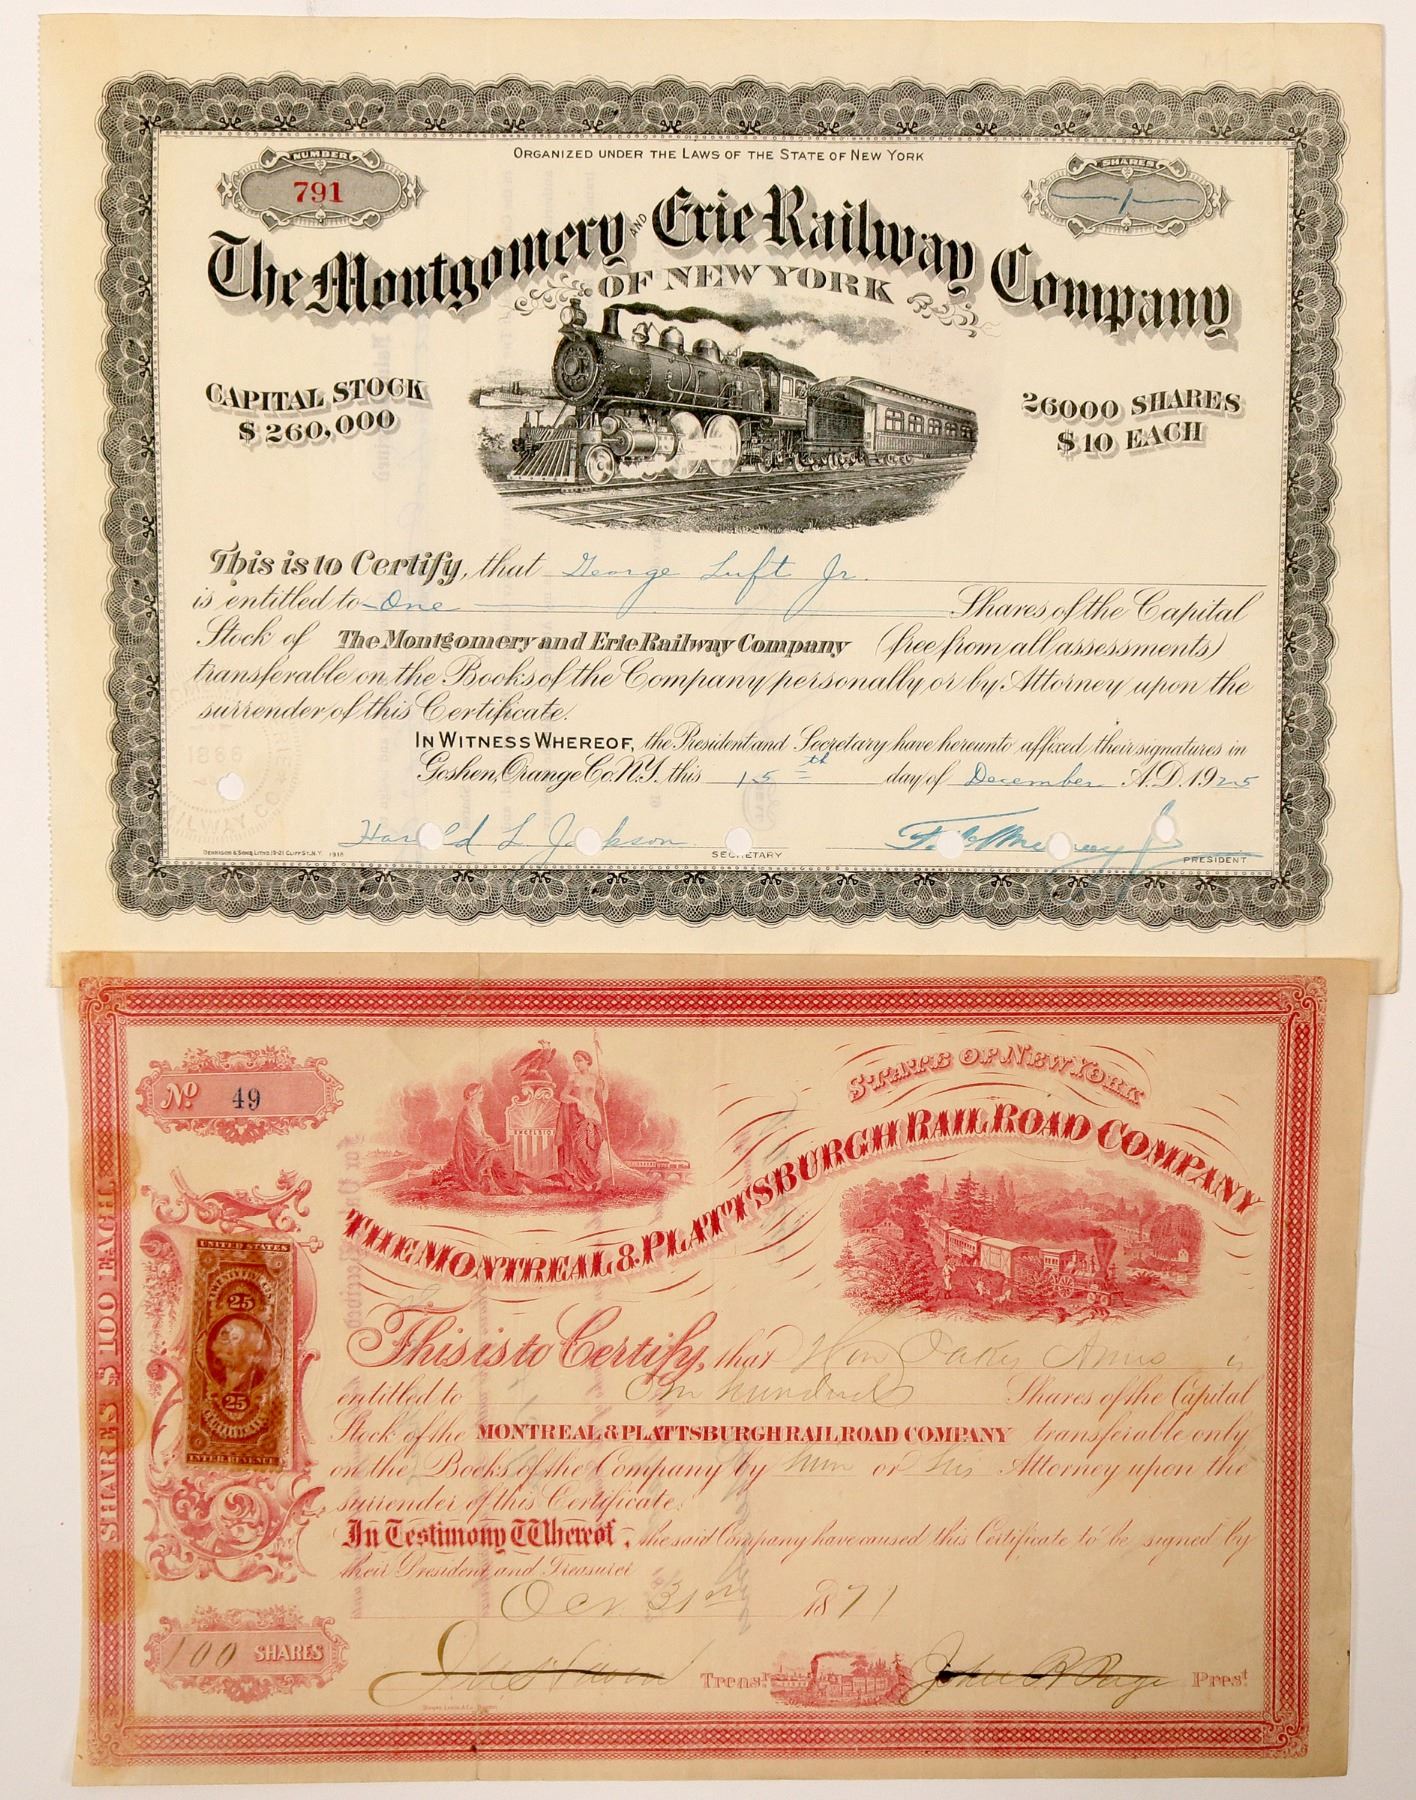 ORGANIZED UNDER THE LAWS OF THE STATE OF NEW YORK
NUMBER
791
SHARES
1
The Montgomery AND Erie Railway Company
OF NEW YORK
CAPITAL STOCK
$260,000
26000 SHARES
$10 EACH
This is to Certify, that George Luft Jr.
is entitled to One Shares of the Capital
Stock of The Montgomery and Erie Railway Company (free from all assessments)
transferable on the Books of the Company personally or by Attorney upon the
surrender of this Certificate.
IN WITNESS WHEREOF, the President and Secretary have hereunto affixed their signatures in
Goshen, Orange Co. N.Y. this 15th day of December A.D. 1925
1866
Harold L. Jackson
SECRETARY
PRESIDENT
DENNISON & SONS, LITHO. 19-21 CLIFF ST. N.Y. 1918
No 49
EXCELSIOR
STATE OF NEW YORK
THE MONTREAL & PLATTSBURGH RAILROAD COMPANY
SHARES $100 EACH
UNITED STATES
25
25
INTER. REVENUE
This is to Certify, that Hon Oakes Ames is
entitled to One hundred Shares of the Capital
Stock of the MONTREAL & PLATTSBURGH RAILROAD COMPANY transferable only
on the Books of the Company by him or his Attorney upon the
surrender of this Certificate.
In Testimony Whereof, the said Company have caused this Certificate to be signed by
their President and Treasurer
Oct. 31st 1871
100 SHARES
Treast.
John B Page Prest.